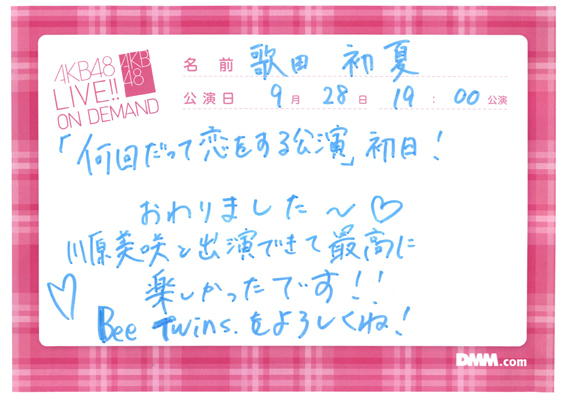 AKB48
LIVE!!
ON DEMAND
AKB
48
名前 歌田 初夏
公演日 9月 28日 19:00公演
「何回だって恋をする公演」初日!
おわりました〜♡
川原美咲と出演できて最高に
楽しかったです!!
♡ Bee Twins.をよろしくね!
DMM.com